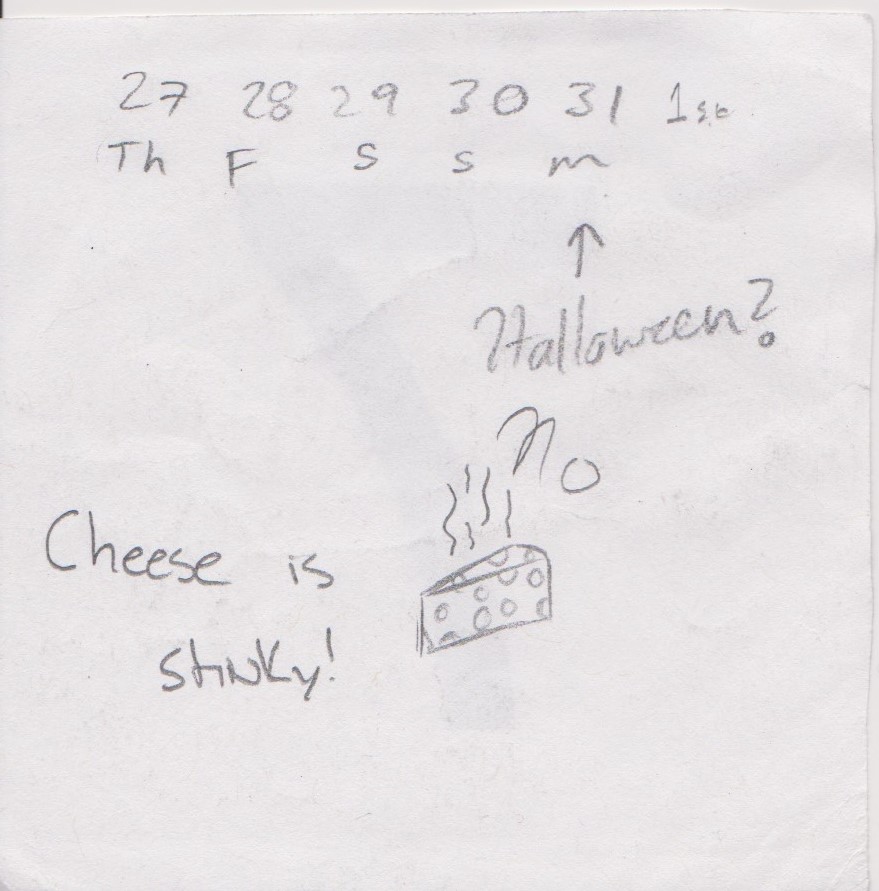 27 28 29 30 31 1st
Th F S S m
↑
Halloween?
No
Cheese is
stinky!